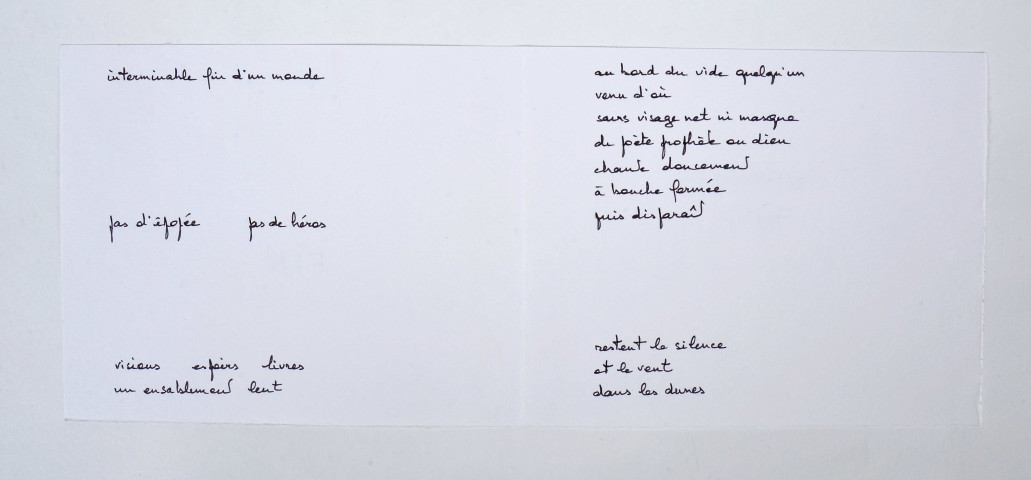 interminable fin d'un monde
pas d'épopée pas de héros
visions espoirs livres
un ensablement lent
au bord du vide quelqu'un
venu d'où
sans visage net ni masque
de poète prophète ou dieu
chante doucement
à bouche fermée
puis disparaît
restent le silence
et le vent
dans les dunes